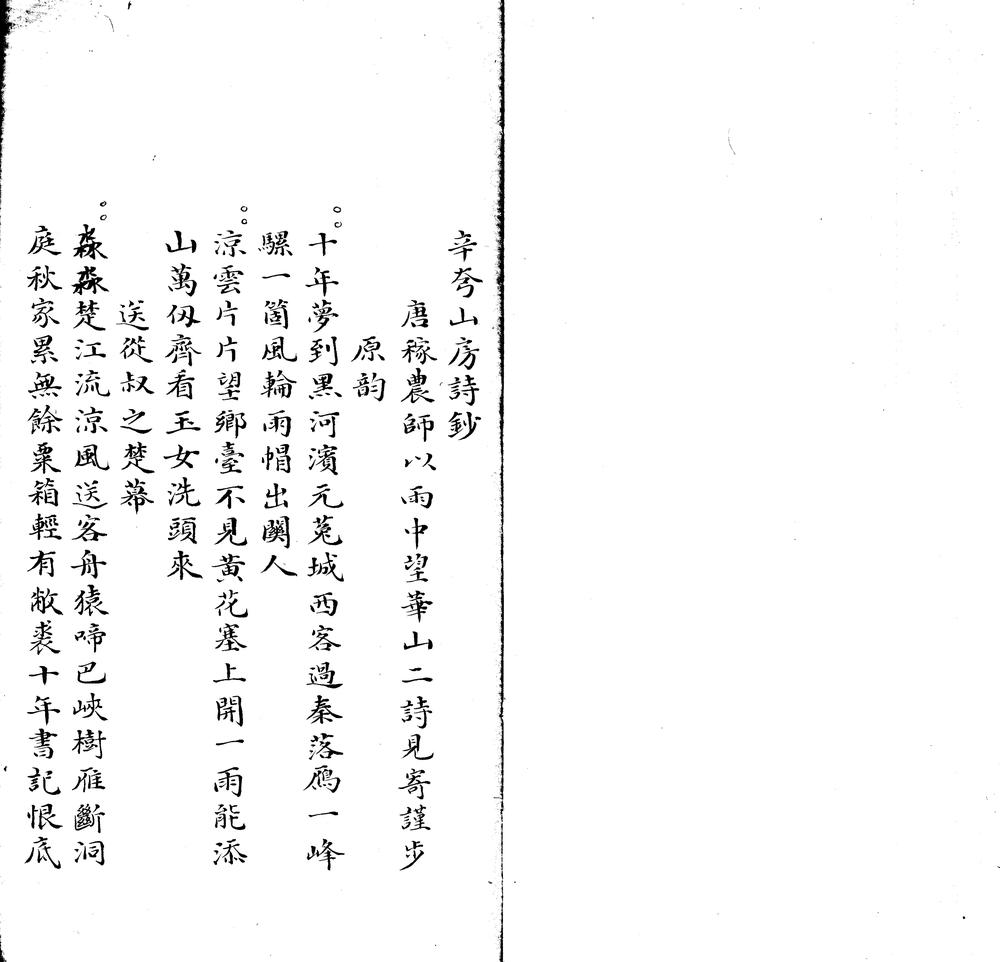 辛夸山房詩鈔
唐稼農師以雨中望華山二詩見寄謹步
原韵
十年夢到黑河濱元菟城西客過秦落鴈一峰
騾一箇風輪雨帽出關人
涼雲片片望鄉臺不見黃花塞上開一雨能添
山萬仭齊看玉女洗頭來
送從叔之楚幕
淼淼楚江流涼風送客舟猿啼巴峽樹雁斷洞
庭秋家累無餘粟箱輕有敝裘十年書記恨底